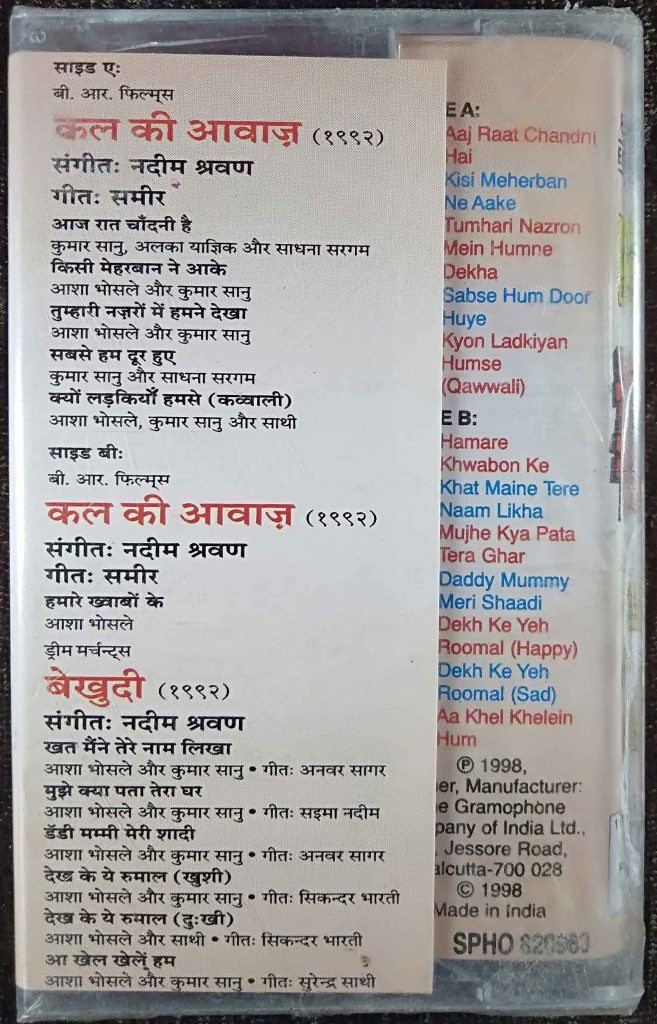 साइड ए:
बी. आर. फिल्म्स
कल की आवाज़ (१९९२)
संगीतः नदीम श्रवण
गीतः समीर
आज रात चाँदनी है
कुमार सानु, अलका याज्ञिक और साधना सरगम
किसी मेहरबान ने आके
आशा भोसले और कुमार सानु
तुम्हारी नज़रों में हमने देखा
आशा भोसले और कुमार सानु
सबसे हम दूर हुए
कुमार सानु और साधना सरगम
क्यों लड़कियाँ हमसे (कव्वाली)
आशा भोसले, कुमार सानु और साथी
साइड बी:
बी. आर. फिल्म्स
कल की आवाज़ (१९९२)
संगीतः नदीम श्रवण
गीतः समीर
हमारे ख्वाबों के
आशा भोसले
ड्रीम मर्चन्ट्स
बेखुदी (१९९२)
संगीतः नदीम श्रवण
खत मैंने तेरे नाम लिखा
आशा भोसले और कुमार सानु • गीतः अनवर सागर
मुझे क्या पता तेरा घर
आशा भोसले और कुमार सानु • गीतः सइमा नदीम
डॅडी मम्मी मेरी शादी
आशा भोसले और कुमार सानु • गीतः अनवर सागर
देख के ये रुमाल (खुशी)
आशा भोसले और कुमार सानु • गीतः सिकन्दर भारती
देख के ये रुमाल (दुःखी)
आशा भोसले और साथी • गीतः सिकन्दर भारती
आ खेल खेलें हम
आशा भोसले और कुमार सानु • गीतः सुरेन्द्र साथी
E A:
Aaj Raat Chandni
Hai
Kisi Meherban
Ne Aake
Tumhari Nazron
Mein Humne
Dekha
Sabse Hum Door
Huye
Kyon Ladkiyan
Humse
(Qawwali)
E B:
Hamare
Khwabon Ke
Khat Maine Tere
Naam Likha
Mujhe Kya Pata
Tera Ghar
Daddy Mummy
Meri Shaadi
Dekh Ke Yeh
Roomal (Happy)
Dekh Ke Yeh
Roomal (Sad)
Aa Khel Khelein
Hum
℗ 1998,
er, Manufacturer:
e Gramophone
pany of India Ltd.,
Jessore Road,
alcutta-700 028
© 1998
Made in India
SPHO